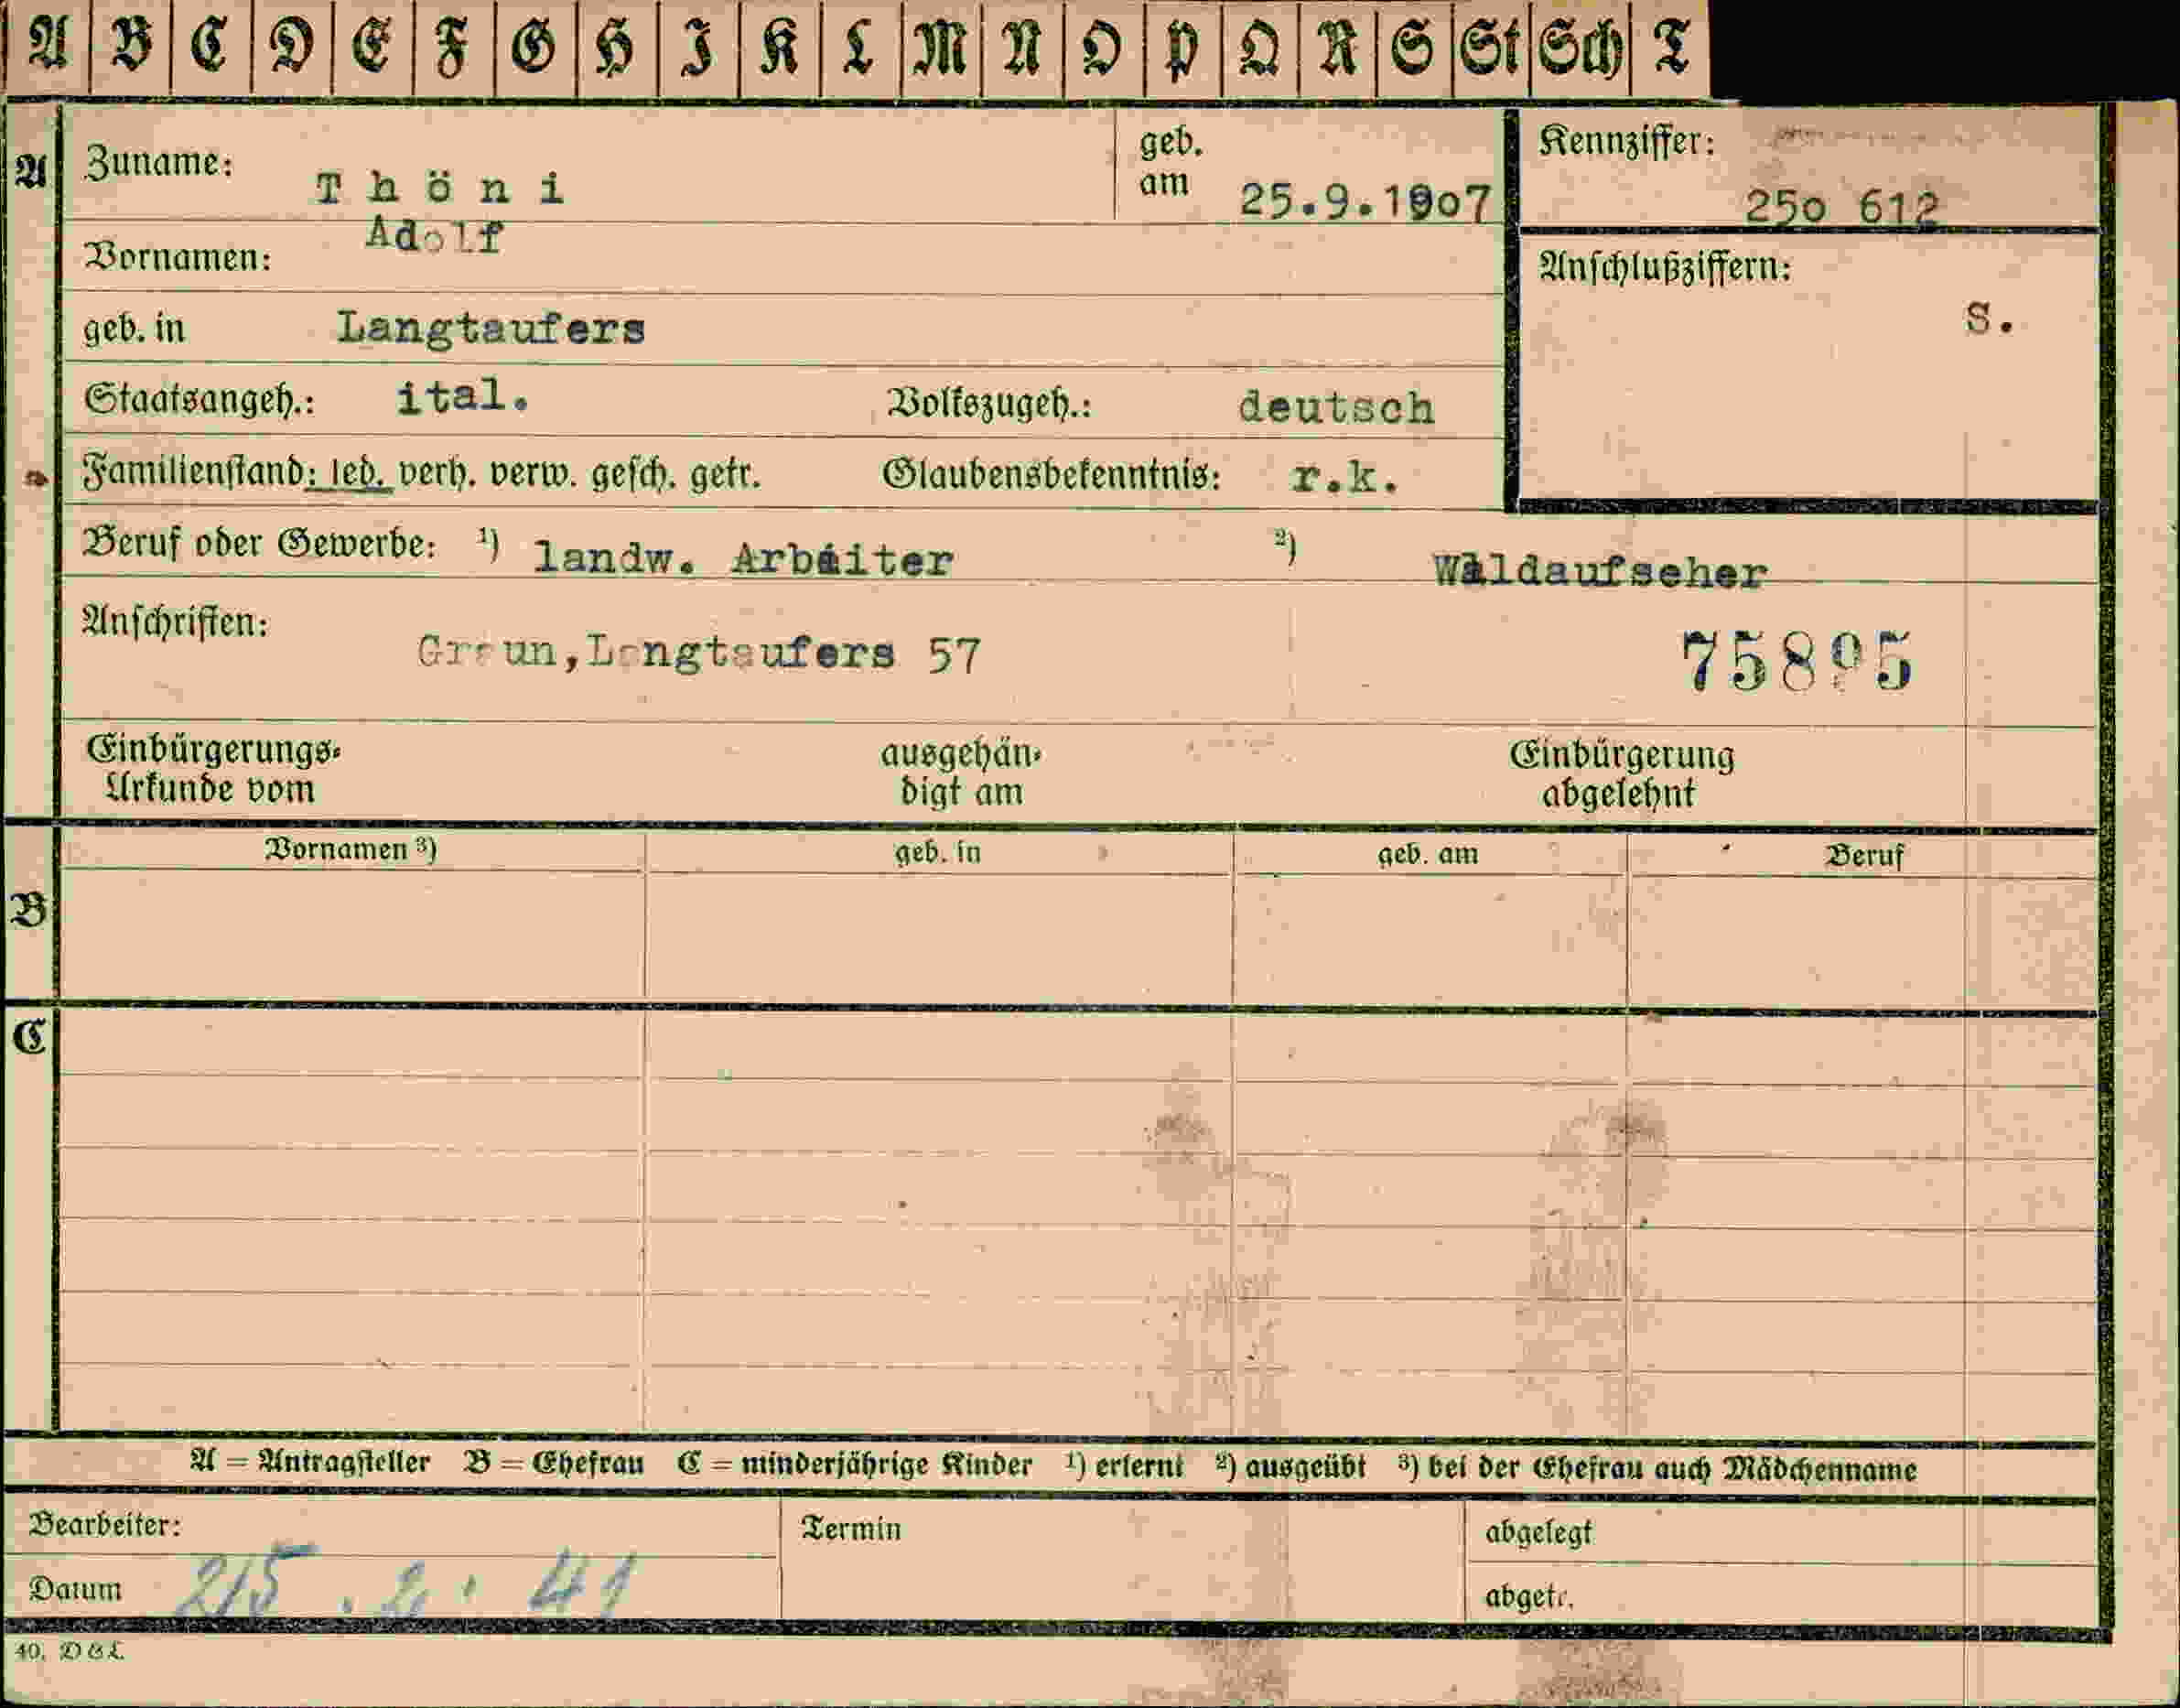 A B C D E F G H I K L M N O P Q R S St Sch T
A Zuname: Thöni geb. am 25.9.1907 Kennziffer: 25o 612
Vornamen: Adolf Anschlußziffern:
S.
geb. in Langtaufers
Staatsangeh.: ital. Volkszugeh.: deutsch
Familienstand: led. verh. verw. gesch. getr. Glaubensbekenntnis: r.k.
Beruf oder Gewerbe: 1) landw. Arbeiter 2) Waldaufseher
Anschriften: Graun, Langtaufers 57 75895
Einbürgerungs- ausgehän- Einbürgerung
Urkunde vom digt am abgelehnt
Vornamen 3) geb. in geb. am Beruf
B
C
A = Antragsteller B = Ehefrau C = minderjährige Kinder 1) erlernt 2) ausgeübt 3) bei der Ehefrau auch Mädchenname
Bearbeiter: Termin abgelegt
Datum abgetr.